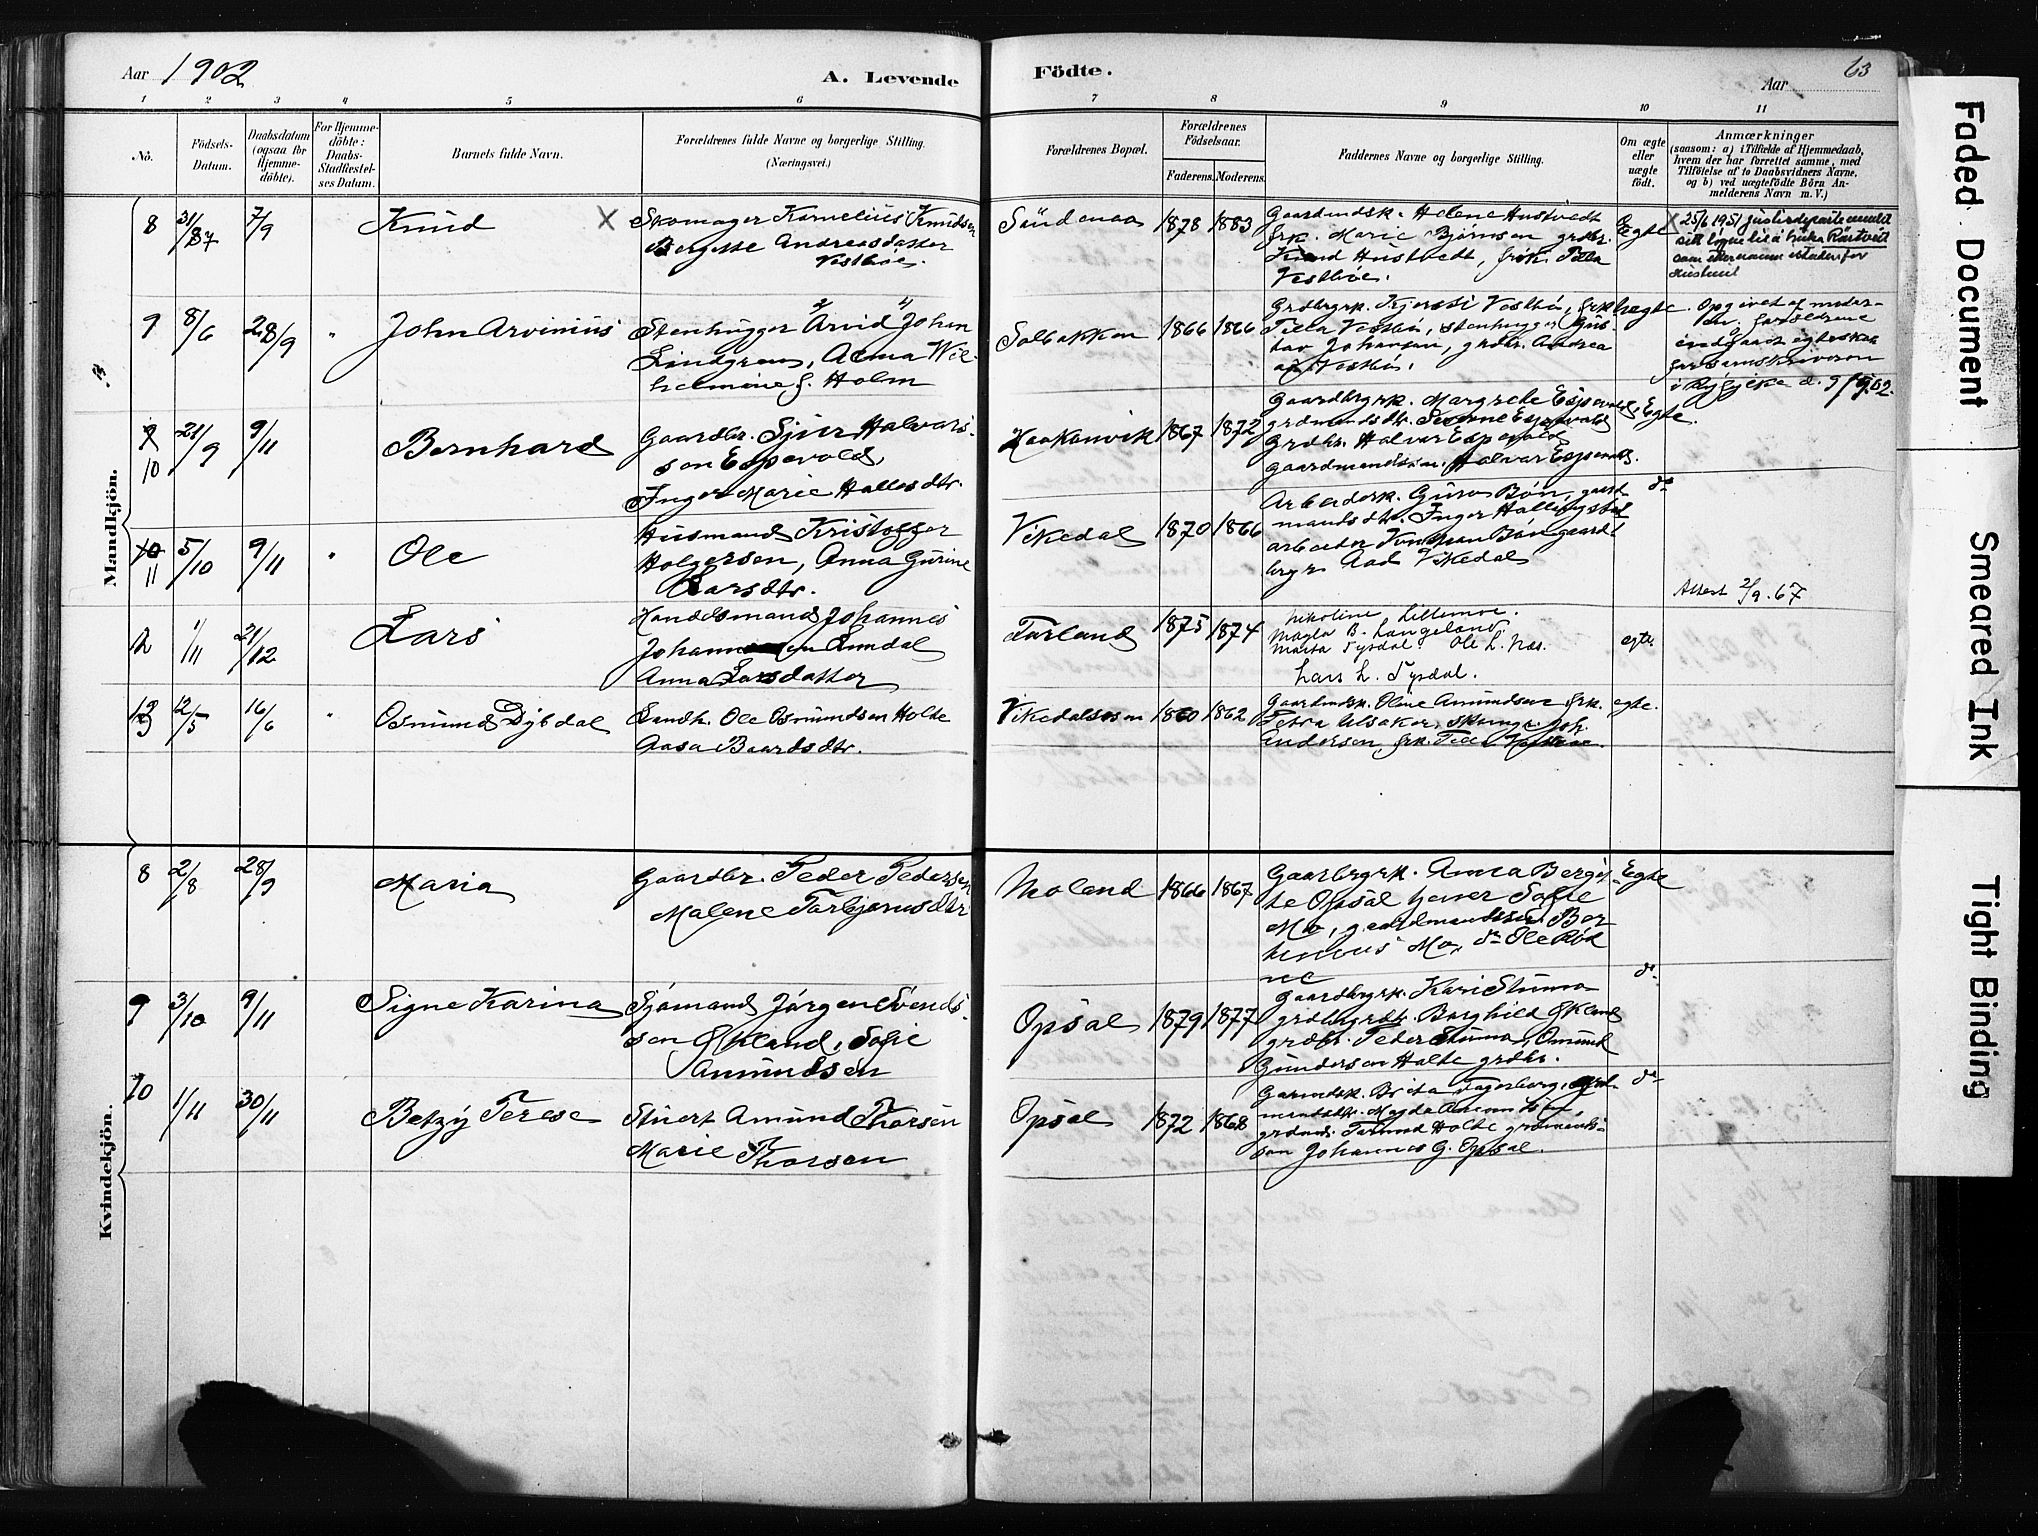 Aar 1902
A. Levende
Födte.
63
Aar
1 2 3 4 5 6 7 8 9 10 11
Nô.
Födsels-Datum.
Daabsdatum (ogsaa for Hjemme-döbte).
For Hjemme-döbte: Daabs-Stadfæstel-ses Datum.
Barnets fulde Navn.
Forældrenes fulde Navne og borgerlige Stilling.
(Næringsvei.)
Forældrenes Bopæl.
Forældrenes Födselsaar.
Faderens. Moderens.
Faddernes Navne og borgerlige Stilling.
Om ægte eller uægte födt.
Anmærkninger
(saasom: a) i Tilfælde af Hjemmedaab,
hvem der har forrettet samme, med
Tilföielse af to Daabsvidners Navne,
og b) ved uægtefödte Börn An-
melderens Navn m. V.)
Mandkjön.
8 31/87 7/9 Knud X Skomager Kornelius Knudsen
Bergitte Andreasdatter
Vestbøe.
Sundenaa 1878 1883
Gaardmdsk. Helene Hustvedt
frk. Marie Bjørnsen grdbr.
Knud Hustvedt, frk. Tilla
Vestbøe.
Egte
X 25/6 1951 Justisdepartementet
sitt løyve til å bruka Rastveit
som etternamn istadenfor
Hustveit
9 8/6 28/9 " John Arvinius Stenhugger Arvid Johan
Lindgren, Anna Wil-
helmine f. Holm
Solbakken 1866 1866
Grdbrgrk. Kjersti Vestbø, frk.
Tilla Vestbø, stenhugger Gus-
tav Johansen, grdbr. Andrea
Vestbø.
uegte
Opgivet af moder-
en. Forældrene
indgaaet egteskab
for sorenskriveren
i Ryfylke d. 9/9 02.
9 10 21/9 9/11 Bernhard Gaardbr. Sjur Halvars-
sen Espevold,
Inger Marie Hallesdtr.
Haakonvik 1867 1872
Gaardbrgrk. Margrete Espevold,
grdmandsdtr. Severine Espevold
Grdbr. Halvar Espevold
gaardmandssøn. Halvar Espevold.
Egte.
10 11 5/10 9/11 " Ole Husmand Kristoffer
Holgersen, Anna Gurine
Larsdtr.
Vikedal 1870 1866
Arbeidersk. Guro Bøn, gaard-
mandsdtr. Inger Hallingstad
arbeider Bøn gaard-
brgr Aad Vikedal
do
Attest 2/9.67
12 1/11 21/12 Lars Handelsmand Johannes
Johannesen Lundal
Anna Larsdatter
Tarland 1875 1874
Nikoline Lillemoe.
Magla B. Langeland.
Marta Tysdal. Ole L. Næs.
Lars L. Tysdal.
egte.
13 12/5 16/6 " Osmund Dybdal Landh. Ole Osmundsen Holte
Aasa Baardsdtr.
Vikedalsosen 1860 1862
Gaardmdsk. Oline Amundsen frk.
Petra Ulsaker, skomager Joh.
Andersen, frk. Tilla Vestbøe.
egte.
Kvindekjön.
8 2/8 28/9 Maria Gaardbr. Peder Pedersen
Malene Torbjørnsdtr
Moland 1866 1867
Gaardbrgrk. Anna Bergit-
te Opsal Sofie
Mo, gaardmandssøn Ber
Mo, do Ole Rød
ne
Egte
9 3/10 9/11 Signe Karina Sjømand Jørgen Svends-
sen Økland, Sofie
Amundsen
Opsal 1879 1877
Gaardbrgrk. Kari Stumo
grdbrgrdtr. Borghild Økland
grdbr. Peder Stumo, Omund
Gundersen Holte grdbr.
do
10 1/11 30/11 Betzy Terese Stuert Amund Thorsen
Marie Thorsen
Opsal 1872 1868
Gaarmdsk. Brita Fagerborg, grd-
mandsdtr. Magda Amundsen,
grdmd. Tormod Holte grdmands-
søn Johannes G. Opsal.
do
Faded Document
Smeared Ink
Tight Binding